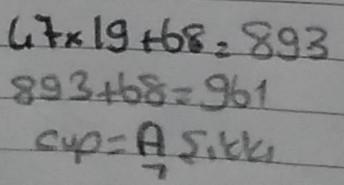 47×19+68=893
893+68=961
cup=A Sikki